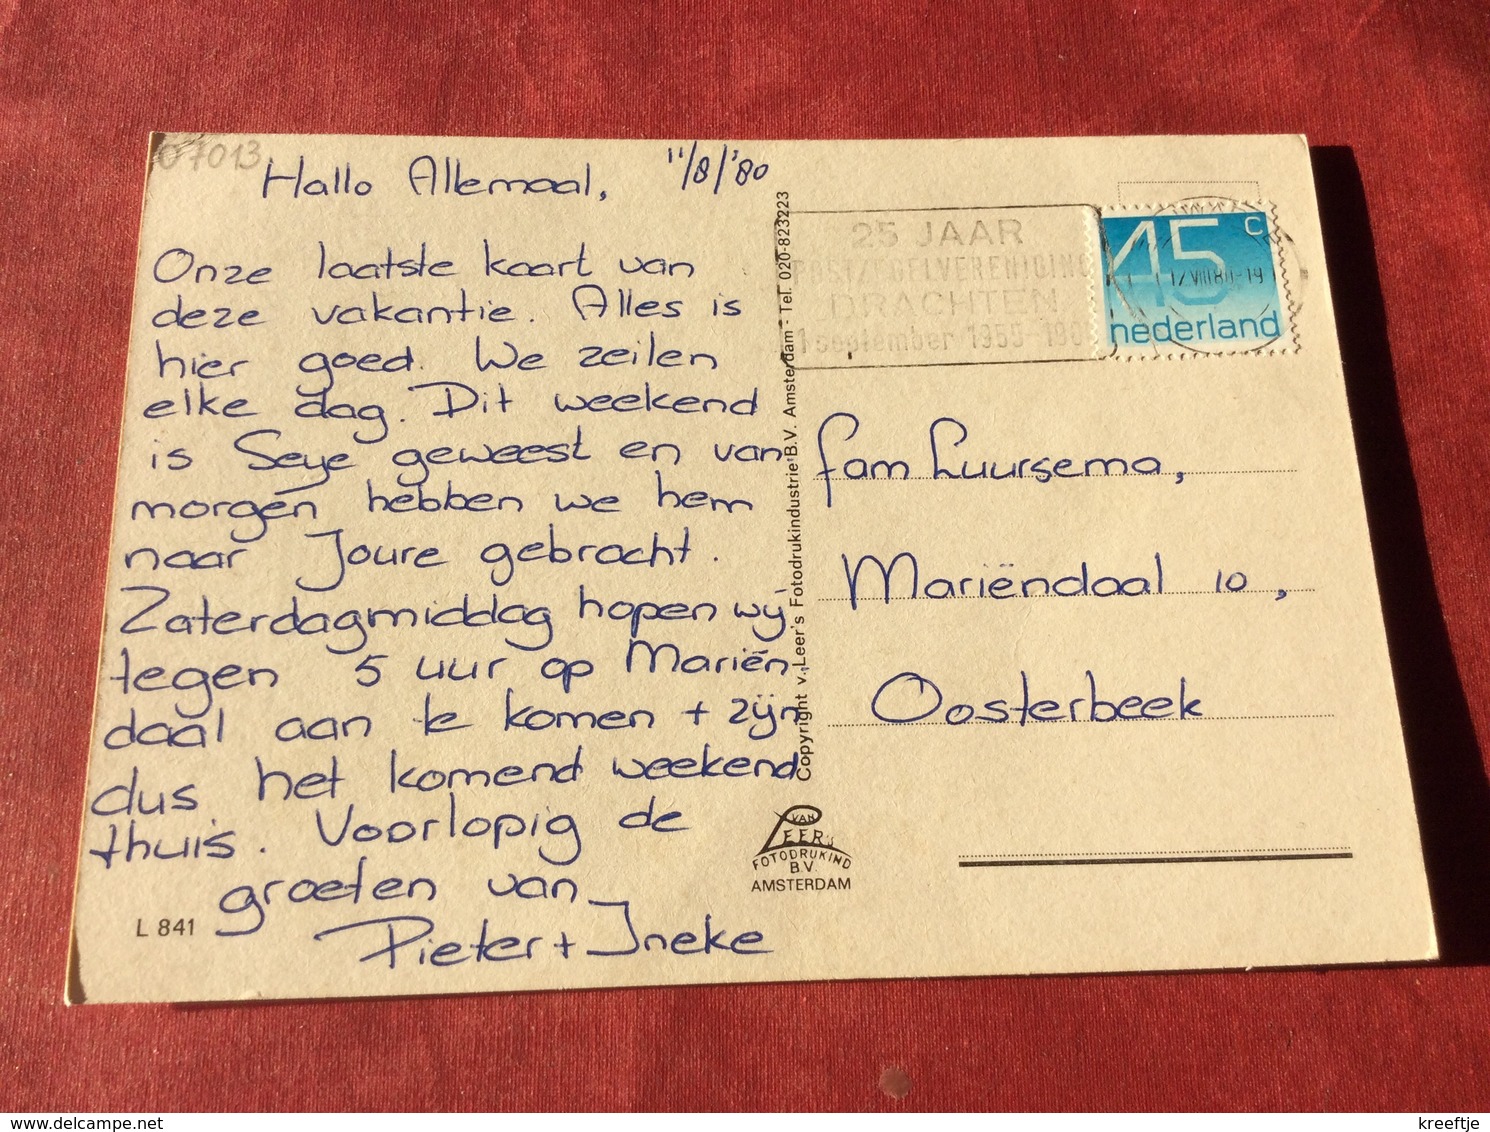 07013
Hallo Allemaal,
11/8/'80
Onze laatste kaart van
deze vakantie. Alles is
hier goed. We zeilen
elke dag. Dit weekend
is Seye geweest en van
morgen hebben we hem
naar Joure gebracht.
Zaterdagmiddag hopen wij
tegen 5 uur op Mariën-
daal aan te komen + zijn
dus het komend weekend
thuis. Voorlopig de
groeten van
Pieter + Ineke
L 841
Copyright v. Leer's Fotodrukindustrie B.V. Amsterdam - Tel. 020-823223
25 JAAR
POSTZEGELVERENIGING
DRACHTEN
1 september 1955-198
45 c
nederland
12 VIII 80-19
fam Luursema,
Mariëndaal 10,
Oosterbeek
VAN
LEER'S
FOTODRUKIND
B.V.
AMSTERDAM
kreeftje